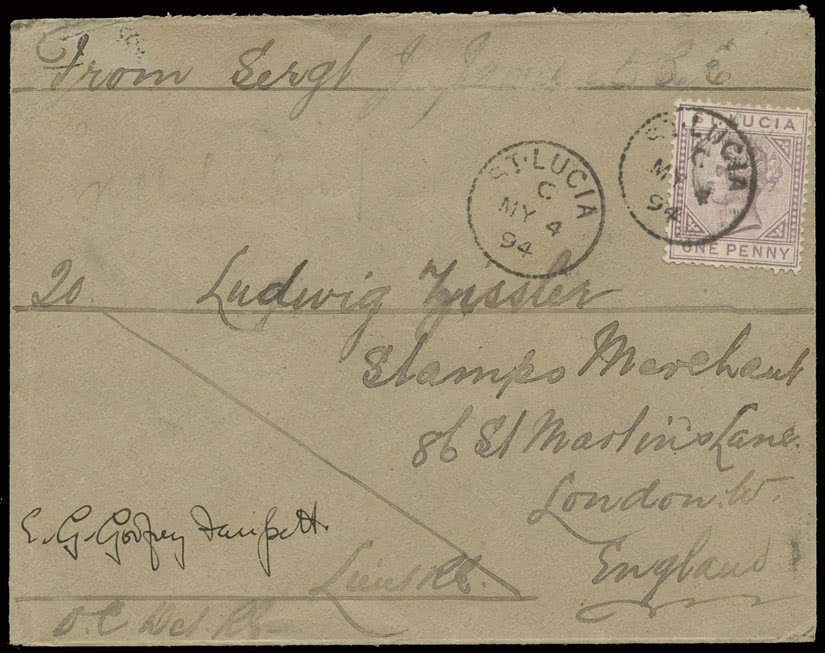 From Sergt J
ST. LUCIA
ONE PENNY
ST. LUCIA
C
MY 4
94
ST. LUCIA
C
MY 4
94
20. Ludwig
Stamps Merchant
86 St Martin's Lane.
London. W.
England
E. G. Godfrey Faussett.
Lieut R.E.
O.C Det. R.E.